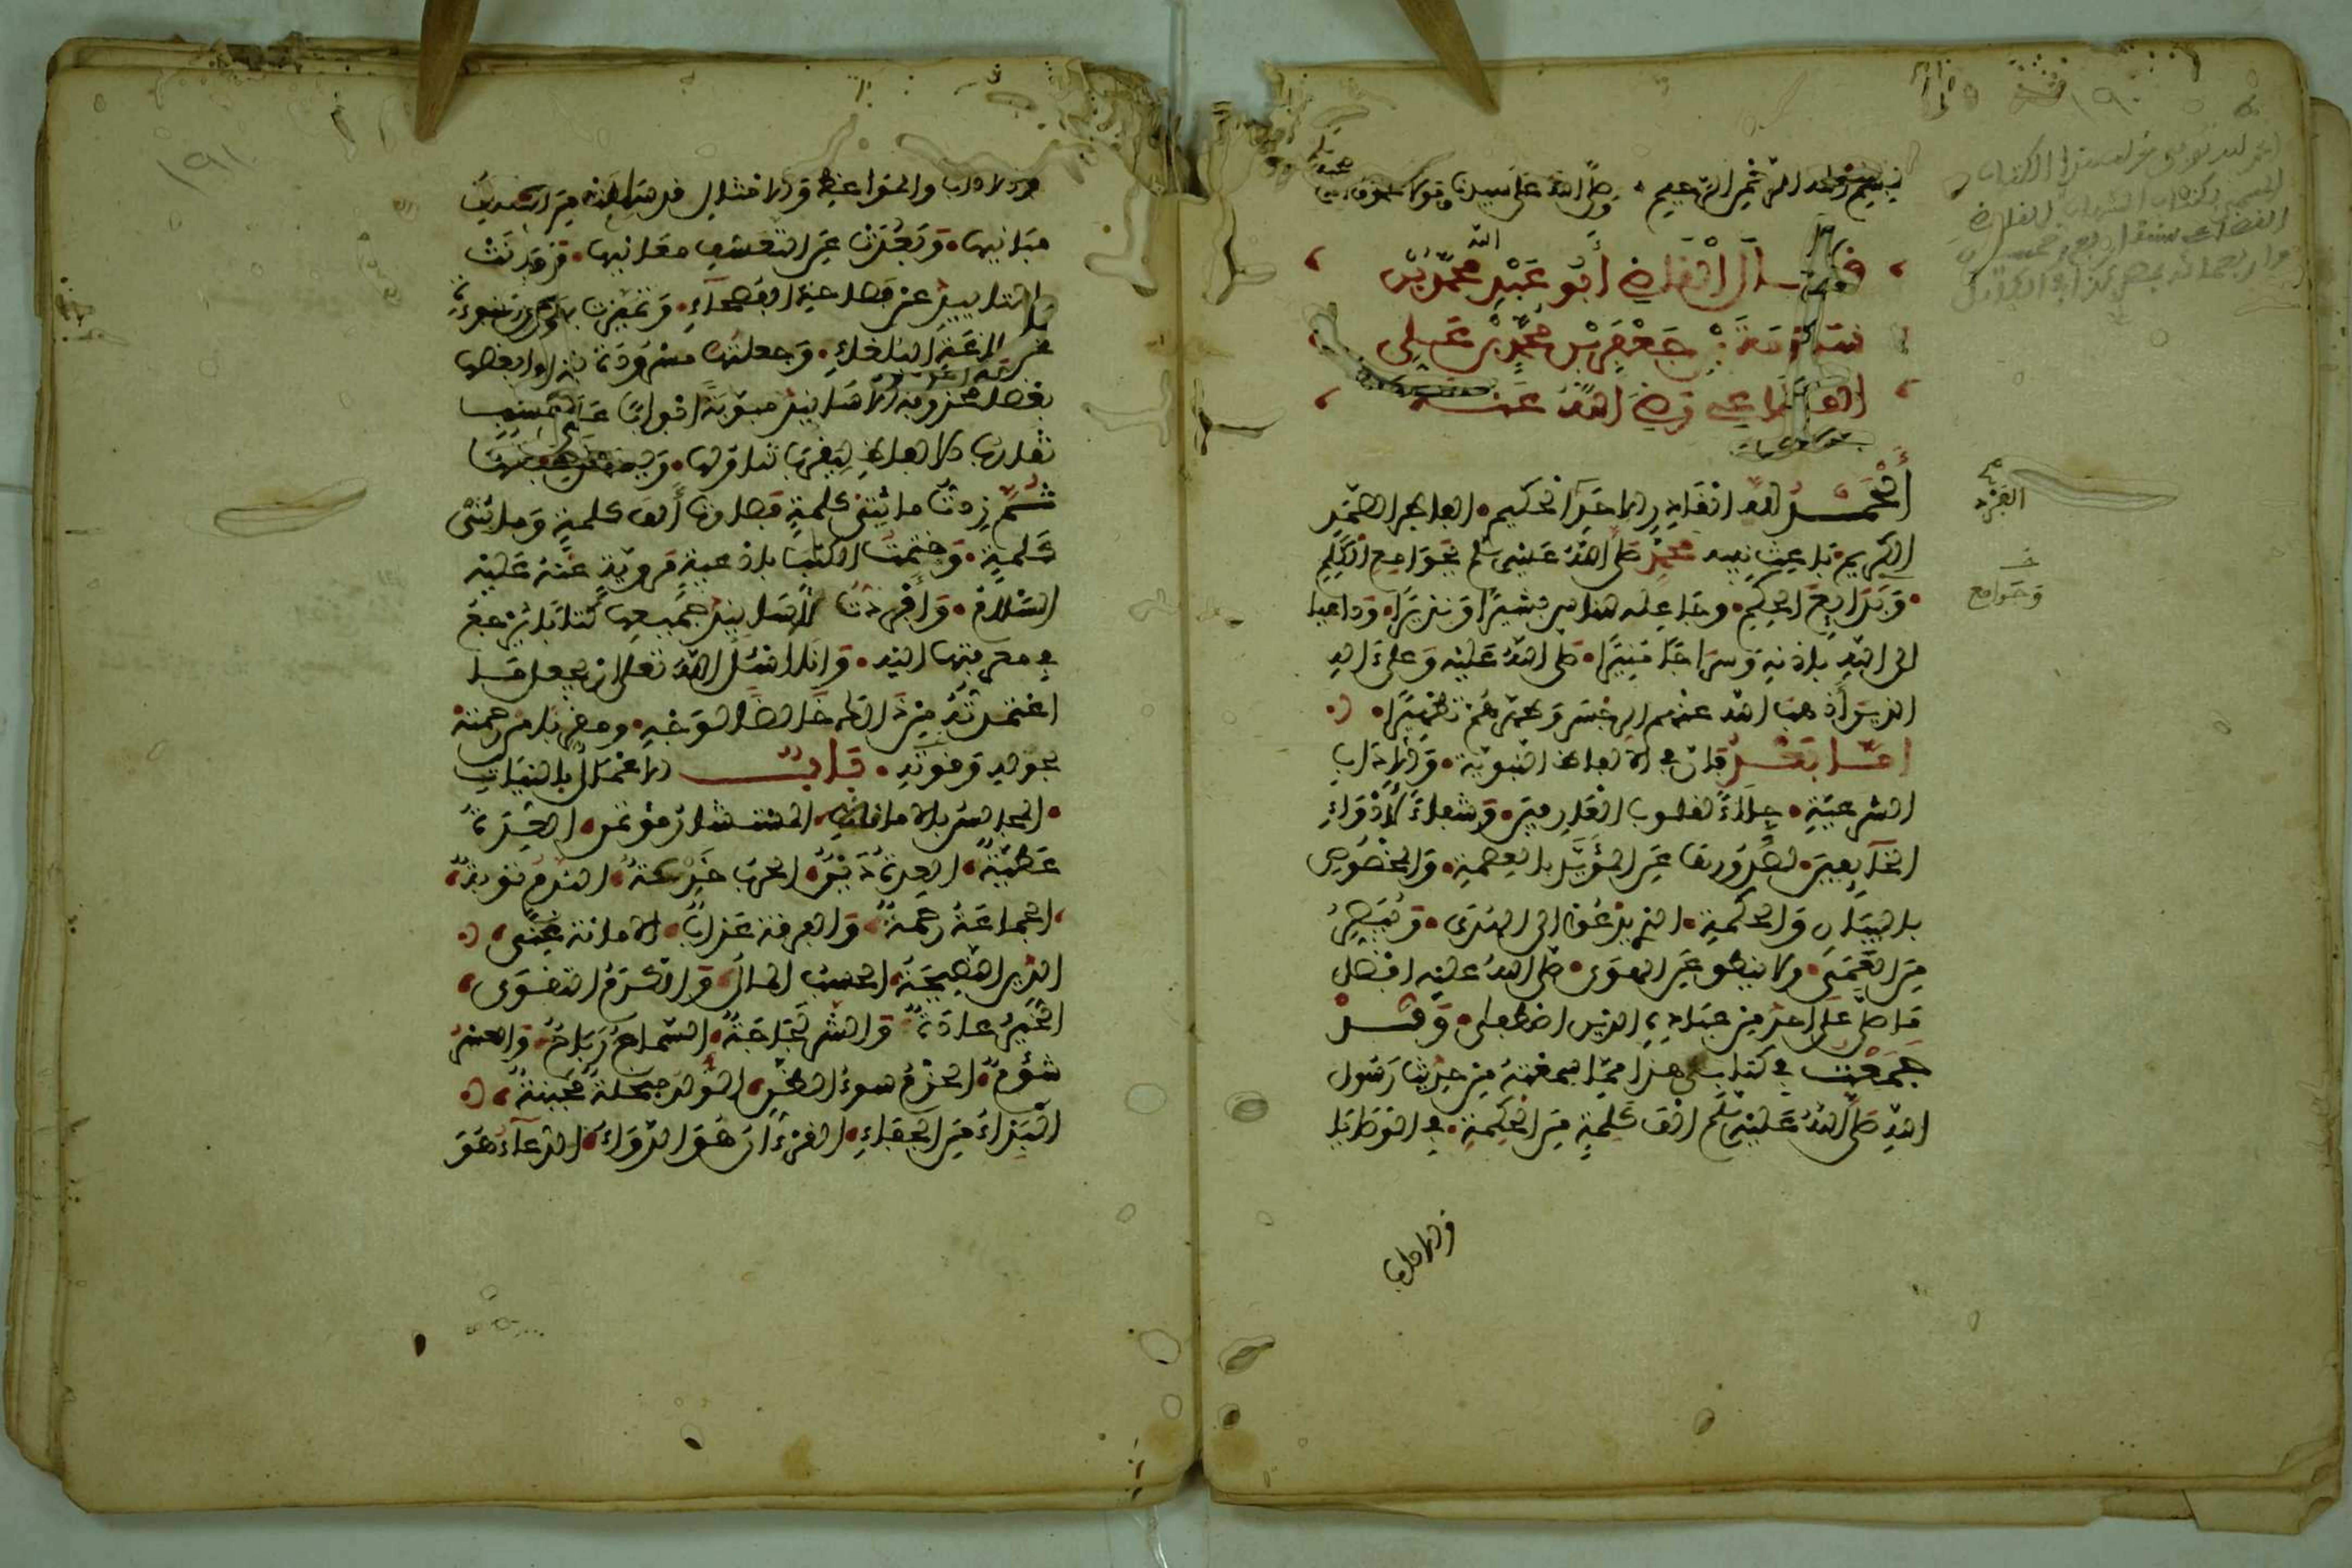 بسم الله الرحمن الرحيم • وصلى الله على سيدنا ومولانا محمد
قال القاضي أبو عبد الله محمد بن
سلامة بن جعفر بن محمد بن علي
القضاعي رضي الله عنه
الحمد لله القادر الأحد الحكيم • الفاطر الصمد
الفرد
الكريم • باعث نبيه محمد صلى الله عليه وسلم بجوامع الكلم
وجوامع
• وبدايع الحكم • وجاعله للناس بشيرا ونذيرا • وداعيا
الى الله بإذنه وسراجا منيرا • صلى الله عليه وعلى آله
الذين أذهب الله عنهم الرجس وطهرهم تطهيرا •
أما بعد فإن في الألفاظ النبوية • والآداب
الشرعية • جلاء لقلوب العارفين • وشفاء لأدواء
الخآيفين • لصدورها عن المؤيد بالعصمة • والمخصوص
بالبيان والحكمة • الذي يدعو الى الهدى • ويبصر
من العمى • ولا ينطق عن الهوى • صلى الله عليه افضل
ما صلى على احد من عباده الذين اصطفى • وقد
جمعت في كتابي هذا مما سمعته من حديث رسول
الله صلى الله عليه وسلم الف كلمة من الحكمة • في الوصايا
والآداب
١٩١
والآداب والمواعظ والامثال قد سلمت من التكلف
مبانيها • وبعدت عن التعسف معانيها • وبانت
بالتأييد عن فصاحة الفصحاء • وتميزت بهدي النبوءة
عن بلاغة البلغاء • وجعلتها مسرودة يتلو بعضها
بعضا محذوفة الاسانيد مبوبة ابوابا على حسب
تقارب الالفاظ ليقرب تناولها • ويسهل حفظها
ثم زدت مائتي كلمة فصارت ألف كلمة ومائتي
كلمة • وختمت الكتاب بأدعية مروية عنه عليه
السلام • وأفردت لأسانيد جميعها كتابا يرجع
في معرفتها اليه • وانا اسئل الله تعالى ان يجعل ما
اعتمدته من ذلك خالصا لوجهه • ومقربا من رحمته
بحوله وقوته • باب الاعمال بالنيات
• المجالس بالأمانة • المستشار مؤتمن • العدة
عطية • العدة دين • الحرب خدعة • الندم توبة •
الجماعة رحمة • والفرقة عذاب • الأمانة غنى •
الدين النصيحة • الحسب المال • والكرم التقوى •
الخير عادة • والشر لجاجة • السماح رباح • والعسر
شؤم • الحزم سوء الظن • الولد مبخلة مجبنة •
البذاء من الجفاء • القرءان هو الدواء • الدعاء هو